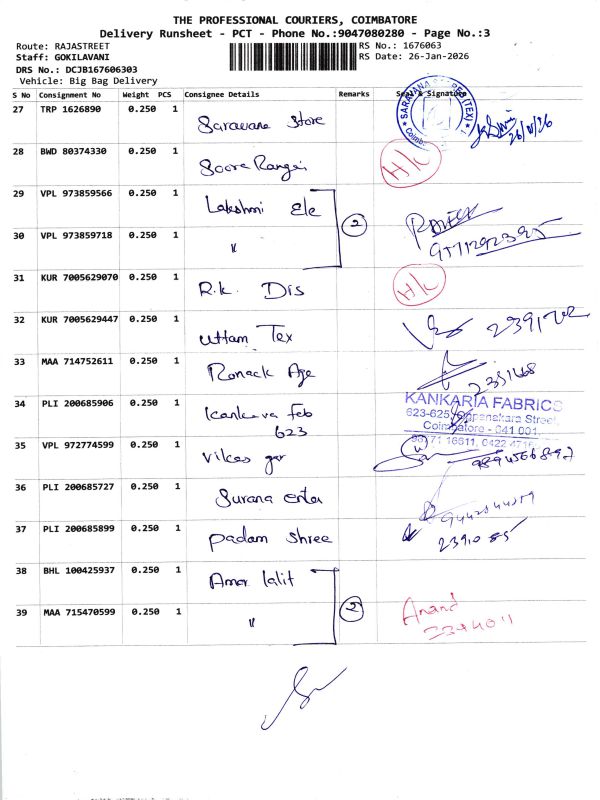 THE PROFESSIONAL COURIERS, COIMBATORE
Delivery Runsheet - PCT - Phone No.:9047080280 - Page No.:3
Route: RAJASTREET
RS No.: 1676063
Staff: GOKILAVANI
RS Date: 26-Jan-2026
DRS No.: DCJB167606303
Vehicle: Big Bag Delivery
S No Consignment No Weight PCS Consignee Details Remarks Seal & Signature
27 TRP 1626890 0.250 1 Saravana Store
28 BWD 80374330 0.250 1 H/c
29 VPL 973859566 0.250 1 Lakshmi Ele
2
30 VPL 973859718 0.250 1 "
31 KUR 7005629070 0.250 1 R.k. Dis H/c
32 KUR 7005629447 0.250 1 Uttam Tex
33 MAA 714752611 0.250 1 Ronack Age
34 PLI 200685906 0.250 1 623
KANKARIA FABRICS
623-625, Oppanakara Street,
Coimbatore - 641 001.
35 VPL 972774599 0.250 1 Vikas
36 PLI 200685727 0.250 1 Surana enter
37 PLI 200685899 0.250 1 Padam Shree
38 BHL 100425937 0.250 1 Amar lalit
2 Anand
39 MAA 715470599 0.250 1 "